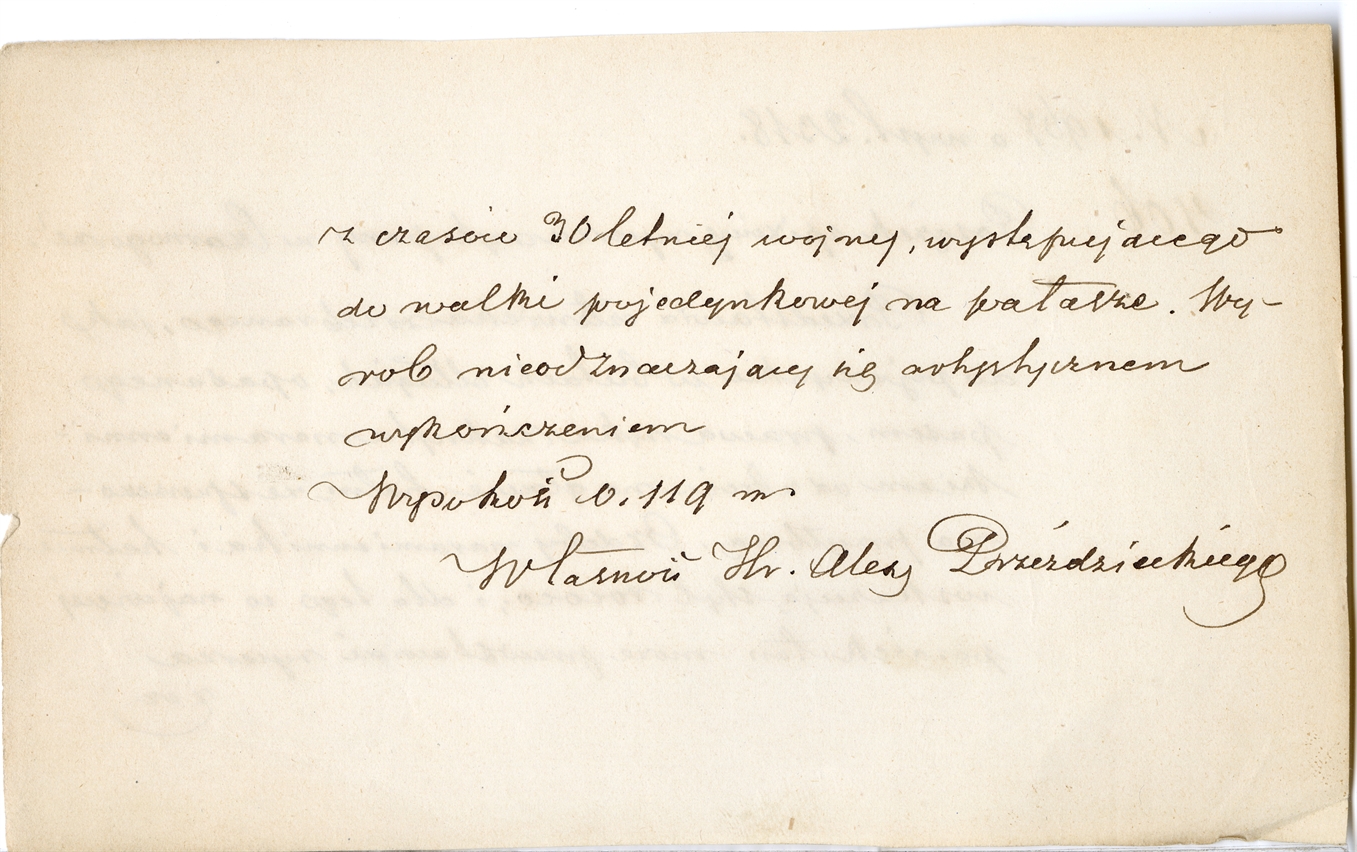 z czasów 30 letniej wojny, występującego
do walki pojedynkowej na pałasze. Wy-
rob nieodznaczający się artystycznem
wykończeniem
Wysokość 0.119 m
Własność Hr. Alex Przeździeckiego